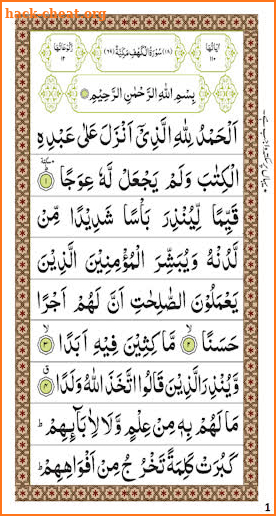 hack-cheat.org
اٰيَاتُهَا ١١٠
(١٨) سُوْرَةُ الْكَهْفِ مَكِّيَّةٌ (٦٩)
رُكُوْعَاتُهَا ١٢
بِسْمِ اللّٰهِ الرَّحْمٰنِ الرَّحِيْمِ
اَلْحَمْدُ لِلّٰهِ الَّذِيْٓ اَنْزَلَ عَلٰى عَبْدِهِ
الْكِتٰبَ وَلَمْ يَجْعَلْ لَّهٗ عِوَجًا ۜ ١
قَيِّمًا لِّيُنْذِرَ بَاْسًا شَدِيْدًا مِّنْ
لَّدُنْهُ وَيُبَشِّرَ الْمُؤْمِنِيْنَ الَّذِيْنَ
يَعْمَلُوْنَ الصّٰلِحٰتِ اَنَّ لَهُمْ اَجْرًا
حَسَنًا ٢ مَّاكِثِيْنَ فِيْهِ اَبَدًا ٣
وَّيُنْذِرَ الَّذِيْنَ قَالُوا اتَّخَذَ اللّٰهُ وَلَدًا ٤
مَا لَهُمْ بِهٖ مِنْ عِلْمٍ وَّلَا لِاٰبَآئِهِمْ ؕ
كَبُرَتْ كَلِمَةً تَخْرُجُ مِنْ اَفْوَاهِهِمْ ؕ
1
hack-cheat.org